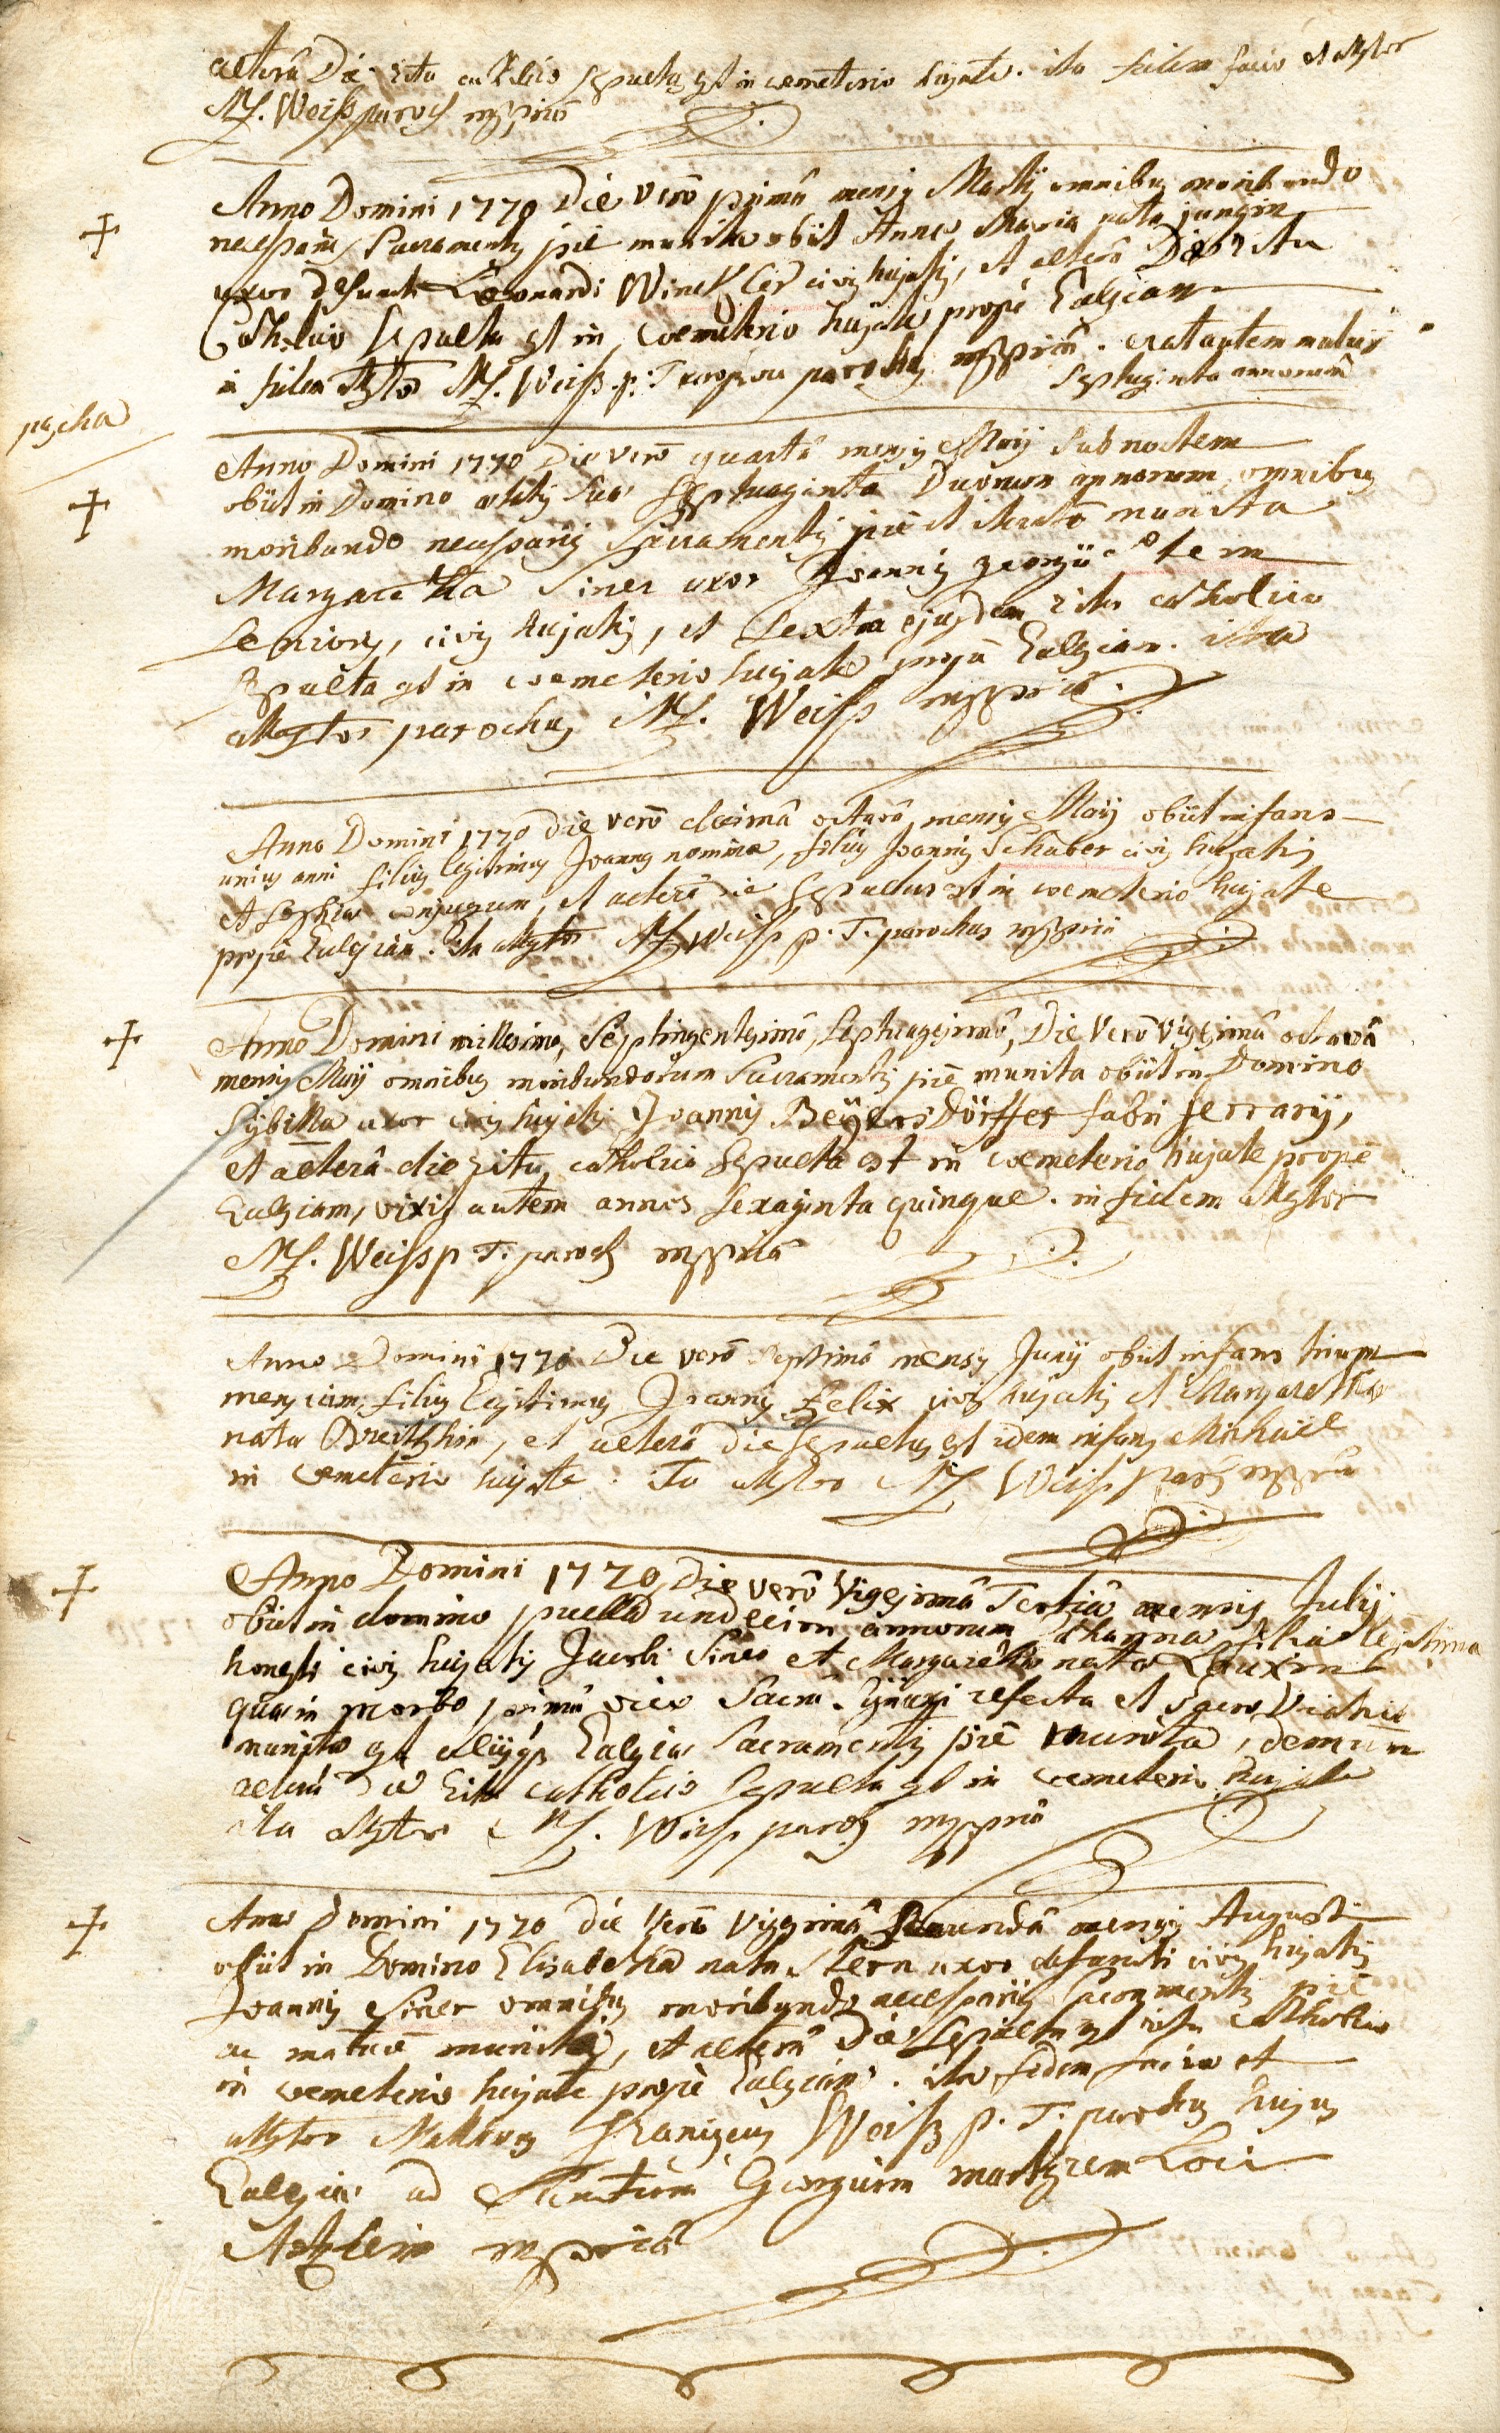 alterâ Die ritu catholico sepulta est in coemeterio hujate. ita fidem facio et attestor
M. Weiss paroch mppriâ
Anno Domini 1770 Die verò primâ mensis Martij omnibus moribundo
necessariis Sacramentis piè munita obiit Anna Maria nata jungin
uxor defuncti Leonardi Winckler civis hujatis, et alterâ Die ritu
Catholico Sepulta est in coemeterio hujate propè Ecclesiam
in fidem attestor M. Weiss p. T. parochus mppriâ. erat autem
Septuaginta annorum
pascha
Anno Domini 1770 Die verò quartâ mensis Maij sub noctem
obiit in Domino aetatis suae Septuaginta Duorum annorum omnibus
moribundo necessariis Sacramentis piè et iteratò munita
Margaretha Siner uxor Joannis georgii Stern
Senioris, civis hujatis, et Sexta ejusdem ritu catholico
Sepulta est in coemeterio hujate propè Ecclesiam. ita
attestor parochus M. Weiss mppriâ.
Anno Domini 1770 die verò decimâ octavâ mensis Maij obiit infans
unius anni filius legitimus Joannes nomine, filius Joannis Schuber civis hujatis
et Sophiae conjugum, et alterâ die Sepultus est in coemeterio hujate
propè Ecclesiam. Ita attestor M. Weiss p. T. parochus mppriâ
Anno Domini millesimo, Septingentesimô, Septuagesimô, Die Verò Vigesimâ octavâ
mensis Maij omnibus moribundorum Sacramentis piè munita obiit in Domino
Sybilla uxor civis hujatis Joannis Beÿersdörffer fabri ferrarij,
et alterâ die ritu catholico Sepulta est in coemeterio hujate propè
Ecclesiam, vixit autem annos Sexaginta quinque. in fidem attestor
M. Weiss p T. paroch mppriâ
Anno Domini 1770 Die verò Septimâ mensis Junij obiit infans trium
mensium, filius legitimus Joannis Felix civis hujatis et Margarethae
nata, et alterâ die Sepultus est idem infans Michaël
in coemeterio hujate. Ita attestor M Weiss paroch mppriâ
Anno Domini 1770 Die verò Vigesimâ Tertiâ mensis Julij
obiit in domino puella undecim annorum filia legitima
honesti civis hujatis Jacobi Siner et Margarethae nata
quae in morbo primâ vice Sacrâ Synaxi refecta et Sacro Viatico
munita est aliisque Ecclesiae Sacramentis piè munita, demum
alterâ die ritu catholico Sepulta est in coemeterio hujate
ita attestor M. Weiss paroch mppriâ
Anno Domini 1770 die Verò Vigesimâ Secundâ mensis Augusti
obiit in Domino Elisabetha nata Stern uxor defuncti civis hujatis
Joannis Siner omnibus moribundo necessariis Sacramentis piè
ac maturè munita, et alterâ Die Sepulta est ritu catholico
in coemeterio hujate propè Ecclesiam. ita fidem facio et
attestor Matthaeus Franciscus Weiss p. T. parochus hujus
Ecclesiae ad Sanctum Georgium martyrem Loci
mppriâ